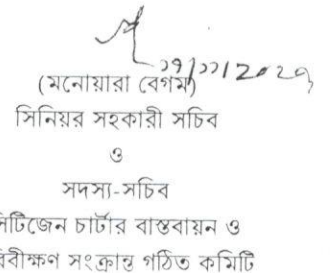 (মনোয়ারা বেগম)
সিনিয়র সহকারী সচিব
ও
সদস্য-সচিব
সিটিজেন চার্টার বাস্তবায়ন ও
পরিবীক্ষণ সংক্রান্ত গঠিত কমিটি